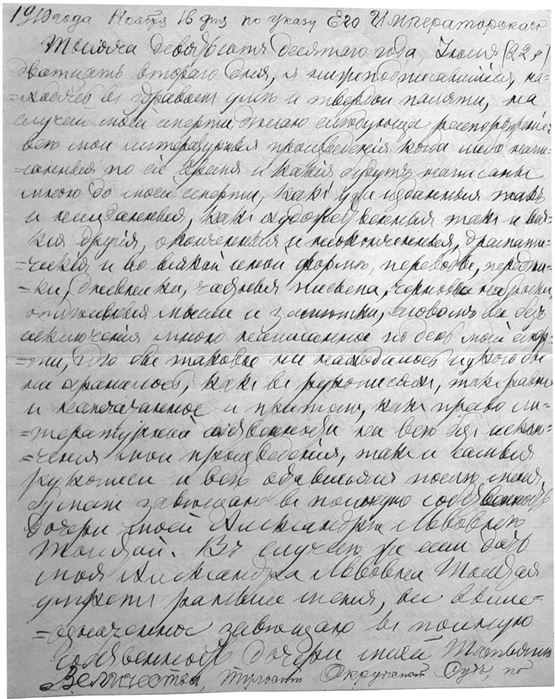 1910 года Ноября 16 дня по указу Его Императорскаго
Тысяча девятьсотъ десятаго года, Іюля (22 д)
двадцать втораго дня, я нижеподписавшійся, на-
=ходясь въ здравомъ умѣ и твердой памяти, на
случай моей смерти дѣлаю слѣдующее распоряженіе:
всѣ мои литературныя произведенія, когда либо напи-
санныя по сіе время и какія будутъ написаны
мною до моей смерти, какъ уже изданныя, такъ
и неизданныя, какъ художественныя, такъ и вся-
кія другія, оконченныя и неоконченныя, драмати-
=ческія и во всякой иной формѣ, переводы, передѣл-
ки, дневники, частныя письма, черновые наброски,
отдѣльныя мысли и замѣтки, словомъ все безъ
исключенія мною написанное по день моей смер-
=ти, гдѣ бы таковое ни находилось и у кого бы
ни хранилось, какъ въ рукописяхъ, такъ равно
и напечатанное и притомъ, какъ право ли-
=тературной собственности на всѣ безъ исклю-
=ченія мои произведенія, такъ и самыя
рукописи и всѣ оставшіяся послѣ меня
бумаги завѣщаю въ полную собственность
дочери моей Александрѣ Львовнѣ
Толстой. Въ случаѣ же если дочь
моя Александра Львовна Толстая
умретъ раньше меня, все выше-
=означенное завѣщаю въ полную
собственность дочери моей Татьянѣ
Величества, Тульскій Окружный Судъ, по